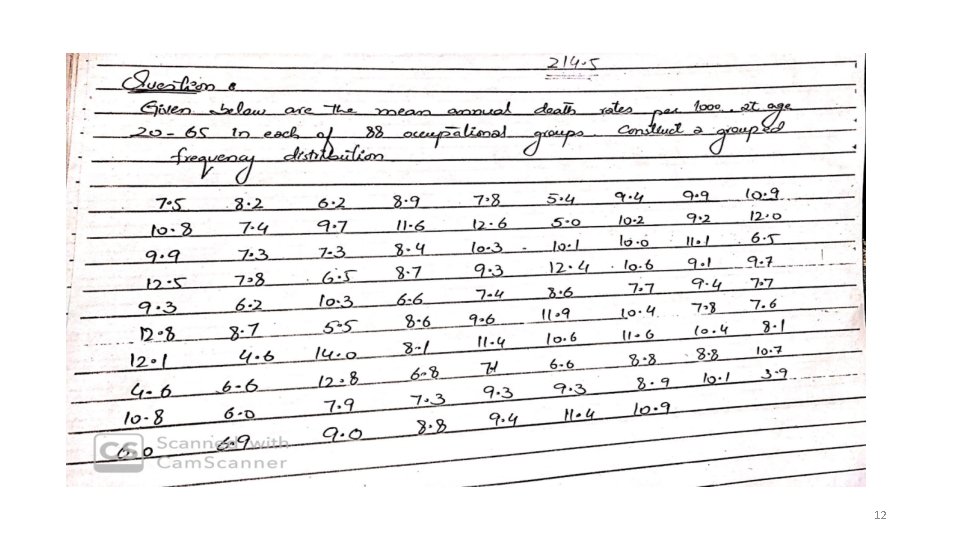 214.5
Question :
Given below are the mean annual death rates per 1000 at age
20-65 in each of 88 occupational groups. Construct a grouped
frequency distribution
7.5 8.2 6.2 8.9 7.8 5.4 9.4 9.9 10.9
10.8 7.4 9.7 11.6 12.6 5.0 10.2 9.2 12.0
9.9 7.3 7.3 8.4 10.3 10.1 10.0 11.1 6.5
12.5 7.8 6.5 8.7 9.3 12.4 10.6 9.1 9.7
9.3 6.2 10.3 6.6 7.4 8.6 7.7 9.4 7.7
12.8 8.7 5.5 8.6 9.6 11.9 10.4 7.8 7.6
12.1 4.6 14.0 8.1 11.4 10.6 11.6 10.4 8.1
4.6 6.6 12.8 6.8 7.1 6.6 8.8 8.8 10.7
10.8 6.0 7.9 7.3 9.3 9.3 8.9 10.1 3.9
6.0 6.9 9.0 8.8 9.4 11.4 10.9
CS Scanned with
CamScanner
12